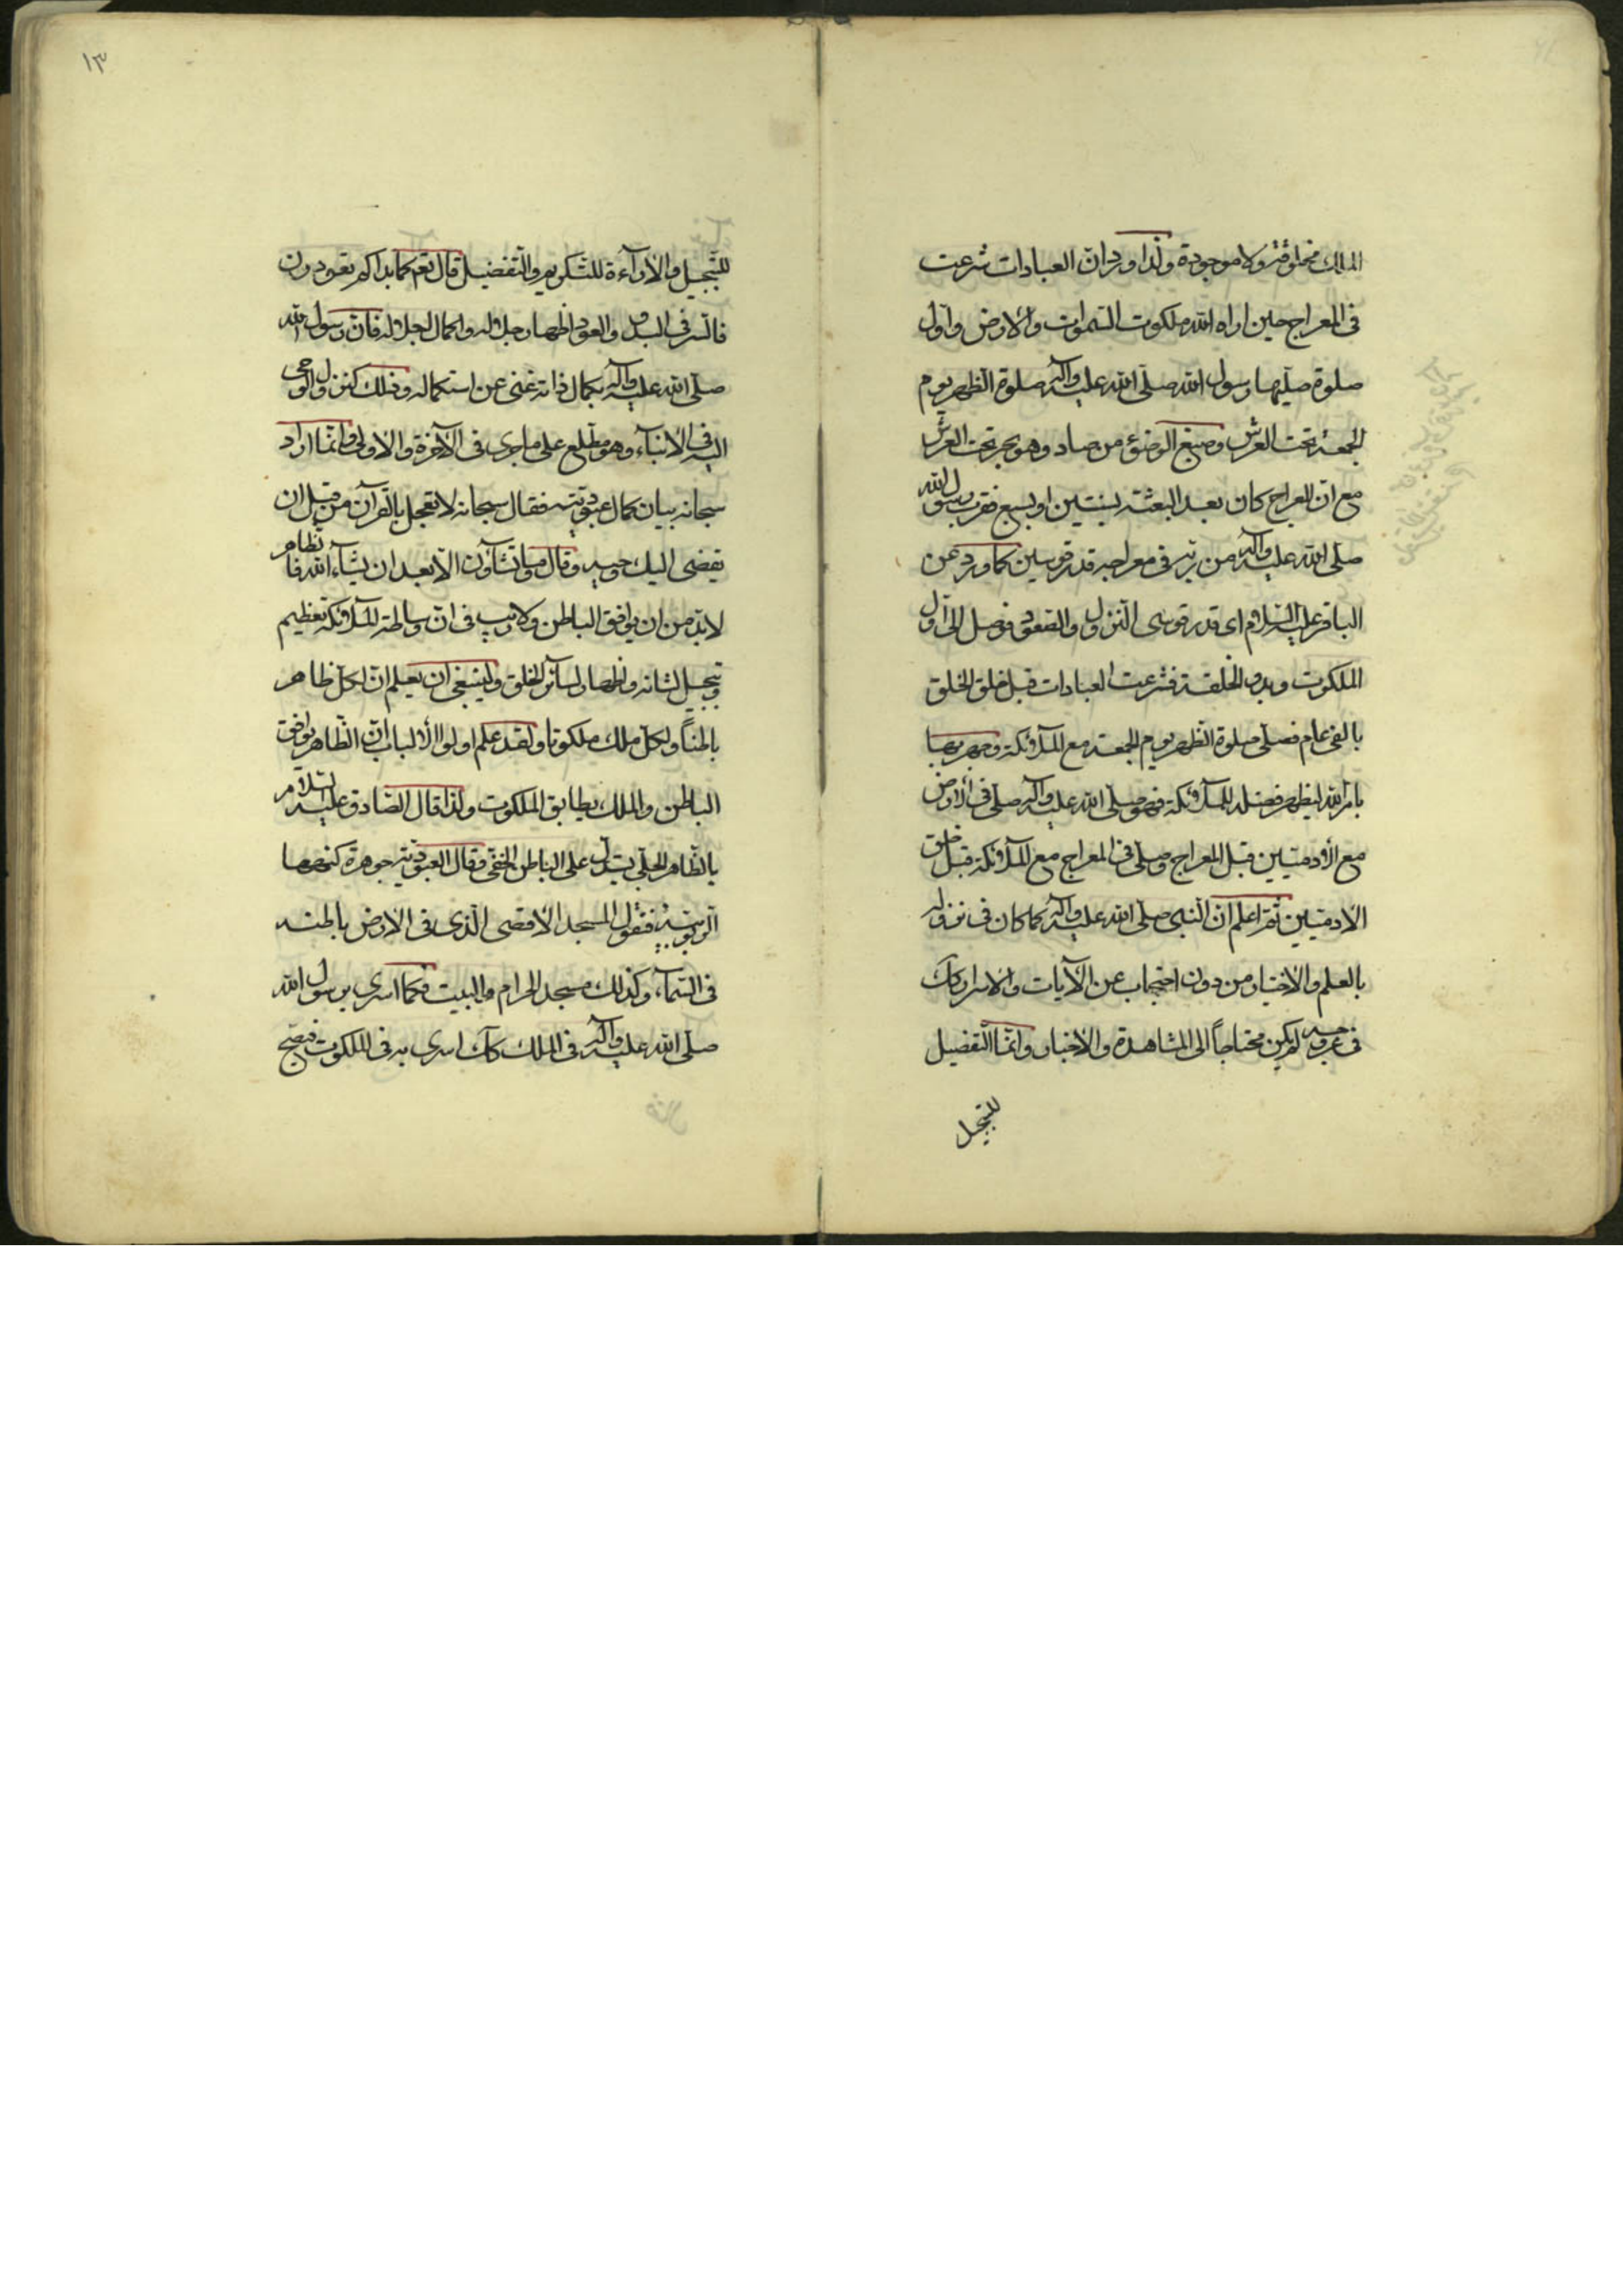 الملك مخلوقة ولا موجودة ولذا ورد ان العبادات شرعت
فى المعراج حين اراه الله ملكوت السموات والارض واول
صلوة صلّيها رسول الله صلى الله عليه وآله صلوة الظهر يوم
الجمعة تحت العرش وصبغ الوضوء من صاد وهو بحر تحت العرش
مع ان المعراج كان بعد البعثة بسنتين او بسبع فقرب رسول الله
صلى الله عليه وآله من ربّه فى معراجه قدر قوسين كما ورد عن
الباقر عليه السلام اى قدر قوسى النزول والصعود فوصل الى اول
الملكوت وبدو الخلقة فشرعت العبادات قبل خلق الخلق
بالفى عام فصلى صلوة الظهر يوم الجمعة مع الملآئكة وجهر بها
بامر الله ليظهر فضله للملآئكة فهو صلى الله عليه وآله صلى فى الارض
مع الآدميين قبل المعراج وصلى فى المعراج مع الملآئكة قبل خلق
الادميين ثم اعلم ان النبى صلى الله عليه وآله كما كان فى نزوله
بالعلم والاختيار من دون احتجاب عن الآيات والاسرار وكك
فى عروجه لم يكن محتاجاً الى المشاهدة والاخبار وانما التفضيل
للتبجيل
١٣
للتبجيل والارآءة للتكريم والتفضيل قال تعم كما بداكم تعودون
فالسر فى البدو والعود اظهار جلاله واكمال لجلاله فان رسول الله
صلى الله عليه وآله بكمال ذاته غنى عن استكماله وذلك كنزول الوحى
اليه فى الانبآء وهو مطلع على ما جرى فى الآخرة والاولى وانما اراد
سبحانه بيان كمال عبوديته فقال سبحانه لا تعجل بالقرآن من قبل ان
يقضى اليك وحيه وقال وما تشآؤن الا بعد ان يشآء الله فالظاهر
لابد من ان يوافق الباطن ولا ريب فى ان وساطة الملآئكة تعظيم
وتبجيل لشانه واظهار لسآئر الخلق ولينبغى ان يعلم ان لكل ظاهر
باطناً ولكل ملك ملكوتا ولقد علم اولوا الالباب ان الظاهر يوافق
الباطن والملك يطابق الملكوت ولذا قال الصادق عليه السلام
بالظاهر الجلى يستدل على الباطن الخفى وقال العبودية جوهرة كنهها
الربوبية فنقول المسجد الاقصى الذى فى الارض باطنه
فى السمآء وكذلك مسجد الحرام والبيت فكما اسرى برسول الله
صلى الله عليه وآله فى الملك كك اسرى به فى الملكوت فيصح